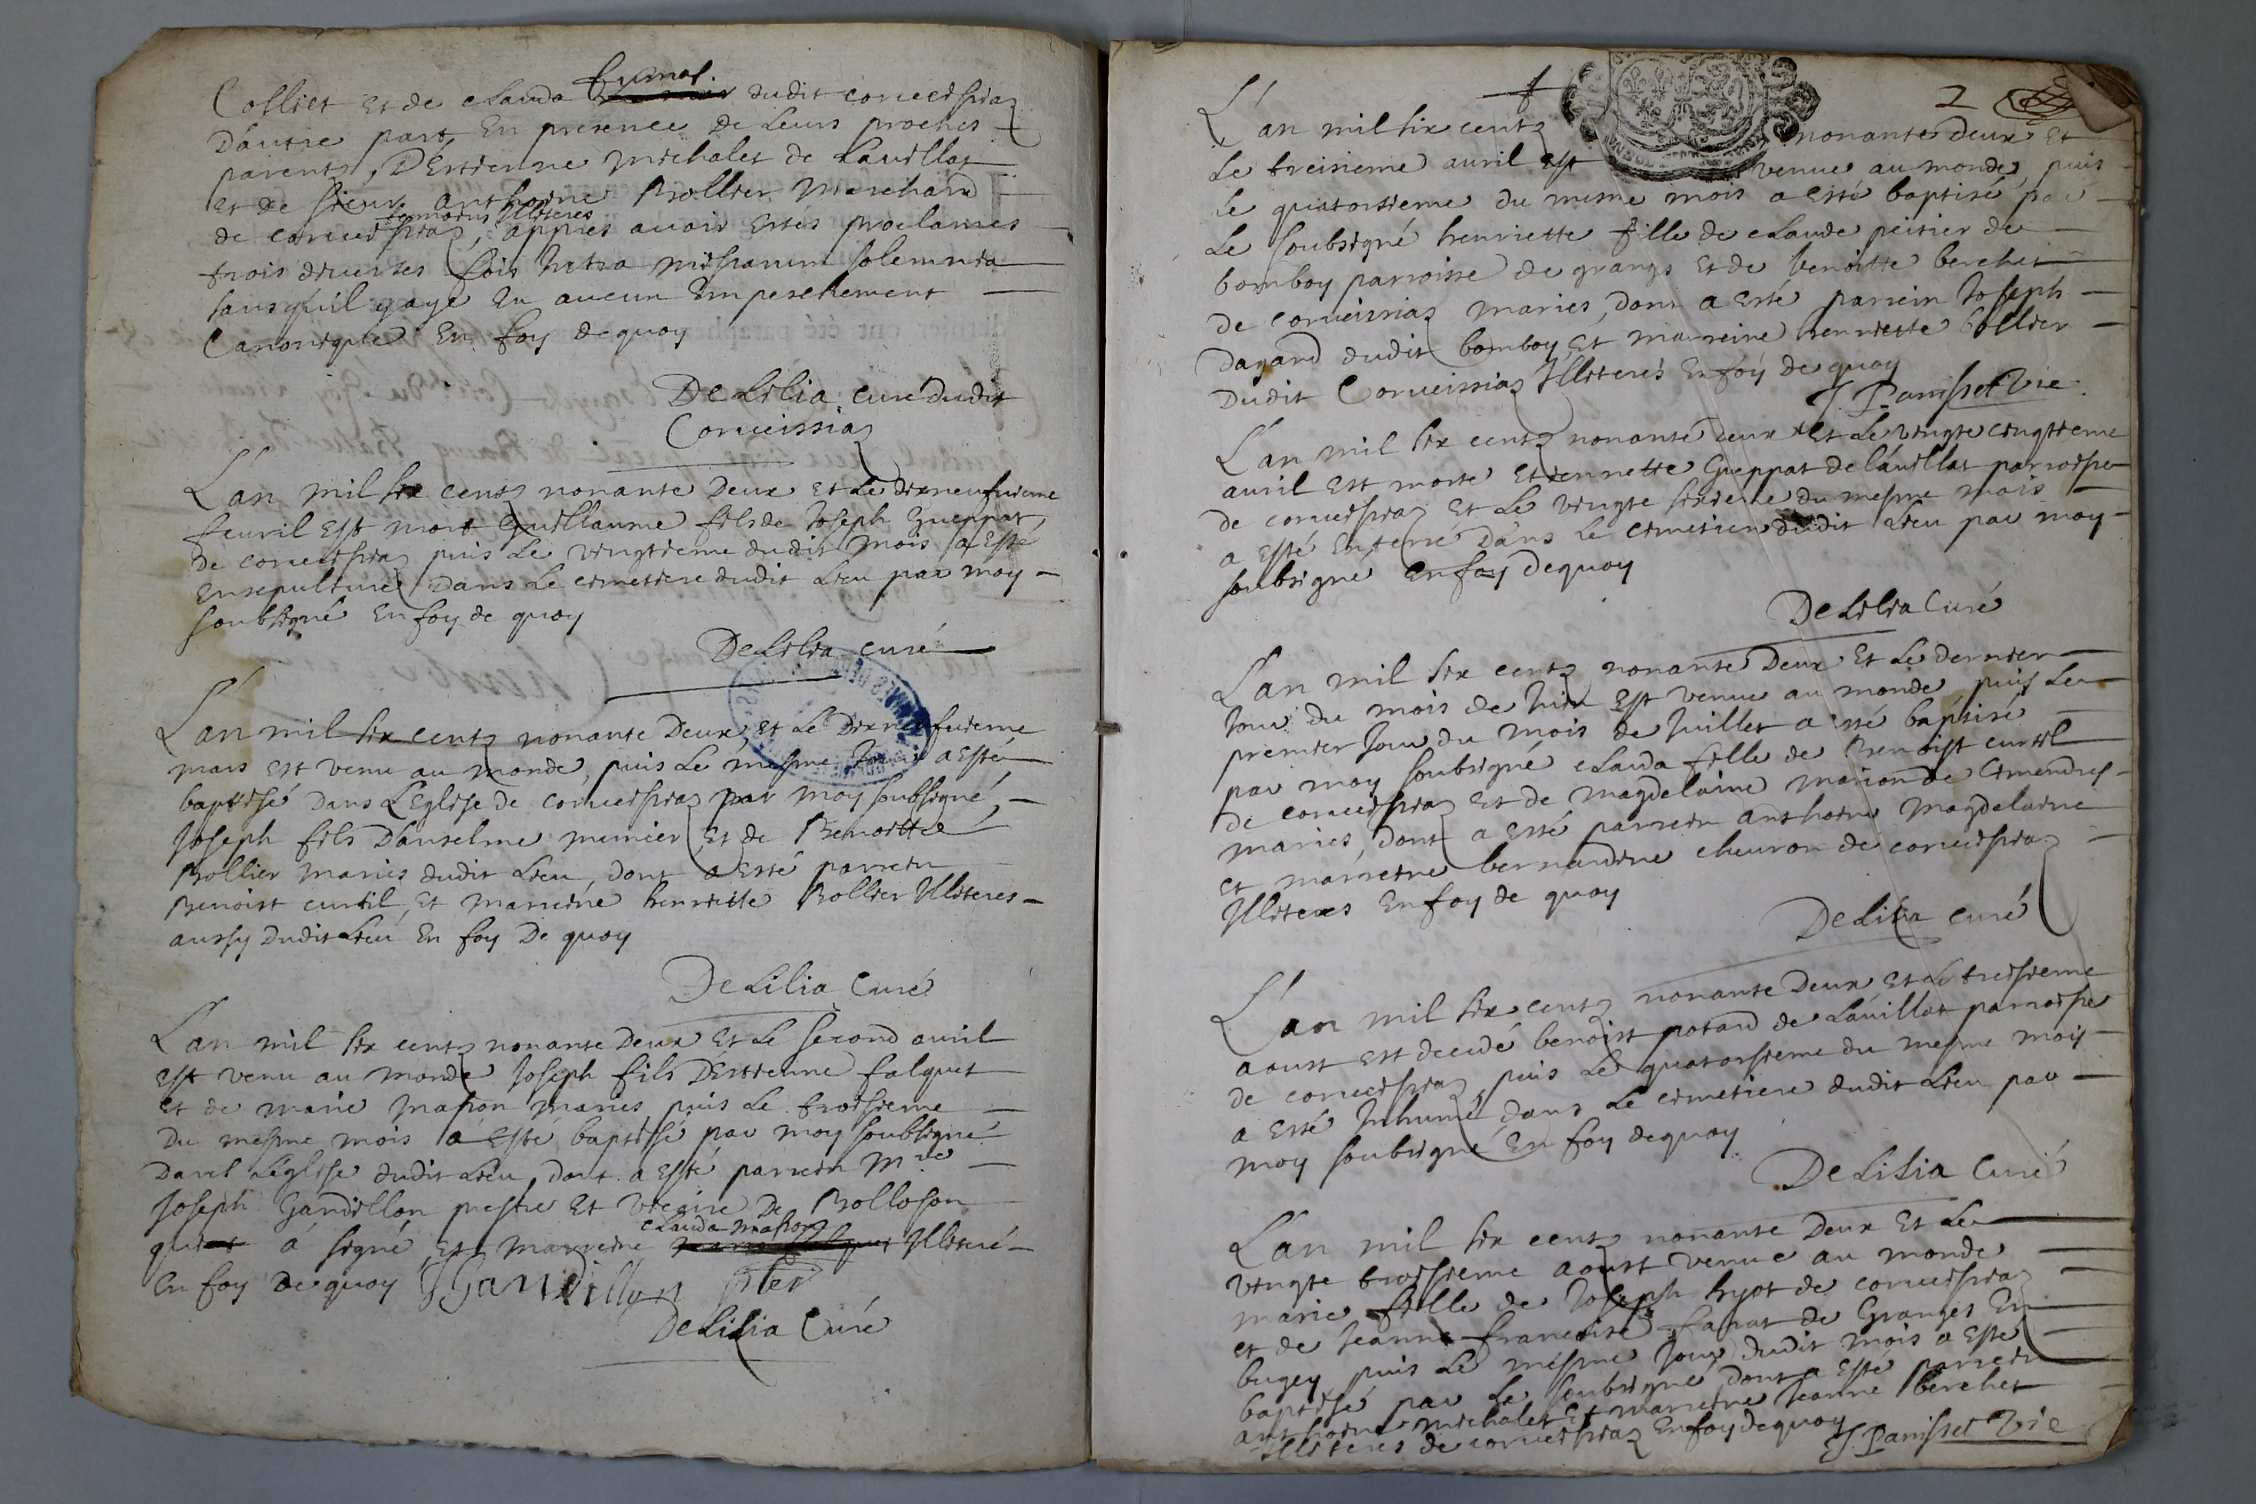 Colliet et de Clauda dudit corveissiaz
D'autre part En presence de Leurs proches
parents, D'Estienne Michalet de Lavillat
et de sieur anthoine Rollier Marchand
temoins Illiteres
de corveissiaz, appres avoir estes proclames
trois diverses fois Intra missarum solemnia
sans qu'il y aye Eu aucun Empeschement
Canonique En foy de quoy
De Lilia curé dudit
Corveissiaz
L'an mil six cents nonante Deux et Le dixneufvieme
feuvril Est mort Guillaume fils de Joseph Gueppat
de corveissiaz puis Le vingtieme dudit mois a esté
Ensepulturé Dans Le cimetiere dudit Lieu par moy
soubsigné En foy de quoy
De Lilia curé
L'an mil six cents nonante Deux, et Le Dixneufvieme
mars est venu au monde, puis Le mesme Jour a esté
baptisé Dans L'Eglise de corveissiaz par moy soubsigné,
Joseph fils D'anselme munier et de Benoitte
Rollier maries dudit Lieu, dont a esté parrein
Benoist curtil, et marreine henriette Rollier Illiteres
aussy dudit Lieu En foy De quoy
De Lilia Curé
L'an mil six cents nonante Deux et Le second avril
est venu au monde Joseph fils D'Estienne falquet
et de marie masson maries puis Le troisieme
Du mesme mois a esté baptisé par moy soubsigné
Dans L'église dudit Lieu, dont a esté parrein Mre
Joseph Gandillon prestre et vicaire De Rolloson
clauda masson
qui a signé, et marreine Illiteré
En foy De quoy JGandillon pter
De Lilia Curé
2
L'an mil six cents nonante deux et
Le treisieme avril est venue au monde, puis
le quatorsieme du mesme mois a esté baptisé par
Le soubsigné henriette fille de Claude peisier de
bomboy parroisse de grangs et de benoitte berchet
de corveissiaz maries, dont a esté parrein Joseph
Dagand dudit bomboy et marreine henriette Collier
Dudit Corveissiaz Illiterés En foy de quoy
J. Panisset Vic
L'an mil six cents nonante deux et Le vingte cinqtieme
avril est morte Etiennette Gueppat de Lavillat parroisse
de corveissiaz et Le vingte sixieme du mesme mois
a esté Enterré Dans Le cimetiere dudit Lieu par moy
soubsigné En foy De quoy
De Lilia Curé
L'an mil six cents nonante Deux et Le dernier
Jour du mois de Juin est venue au monde puis Le
premier Jour du mois de Juillet a été baptisé
par moy soubsigné Clauda fille de Benoist curtil
de corveissiaz et de magdelaine marion de Cimendres
maries, dont a esté parrein anthoine magdelaine
et marreine bernardine chevron de corveissiaz
Illiteres En foy de quoy
De Lilia curé
L'an mil six cents nonante Deux et Le treisieme
aoust est decedé benoist potard de Lavillat parroisse
de corveissiaz, puis Le quatorsieme du mesme mois
a esté Inhumé dans Le cimetiere dudit Lieu par
moy soubsigné En foy de quoy
De Lilia Curé
L'an mil six cents nonante Deux et Le
vingte troisieme aoust venue au monde
marie fille de Joseph hyot de corveissiaz
et de Jeanne francoise fanat de Granges En
bugey puis Le mesme Jour dudit mois a esté
baptisé par Le soubsigné dont a esté parrein
anthoine michalet et marreine Jeanne berchet
Illiteres de corveissiaz En foy de quoy
J. Panisset Vic